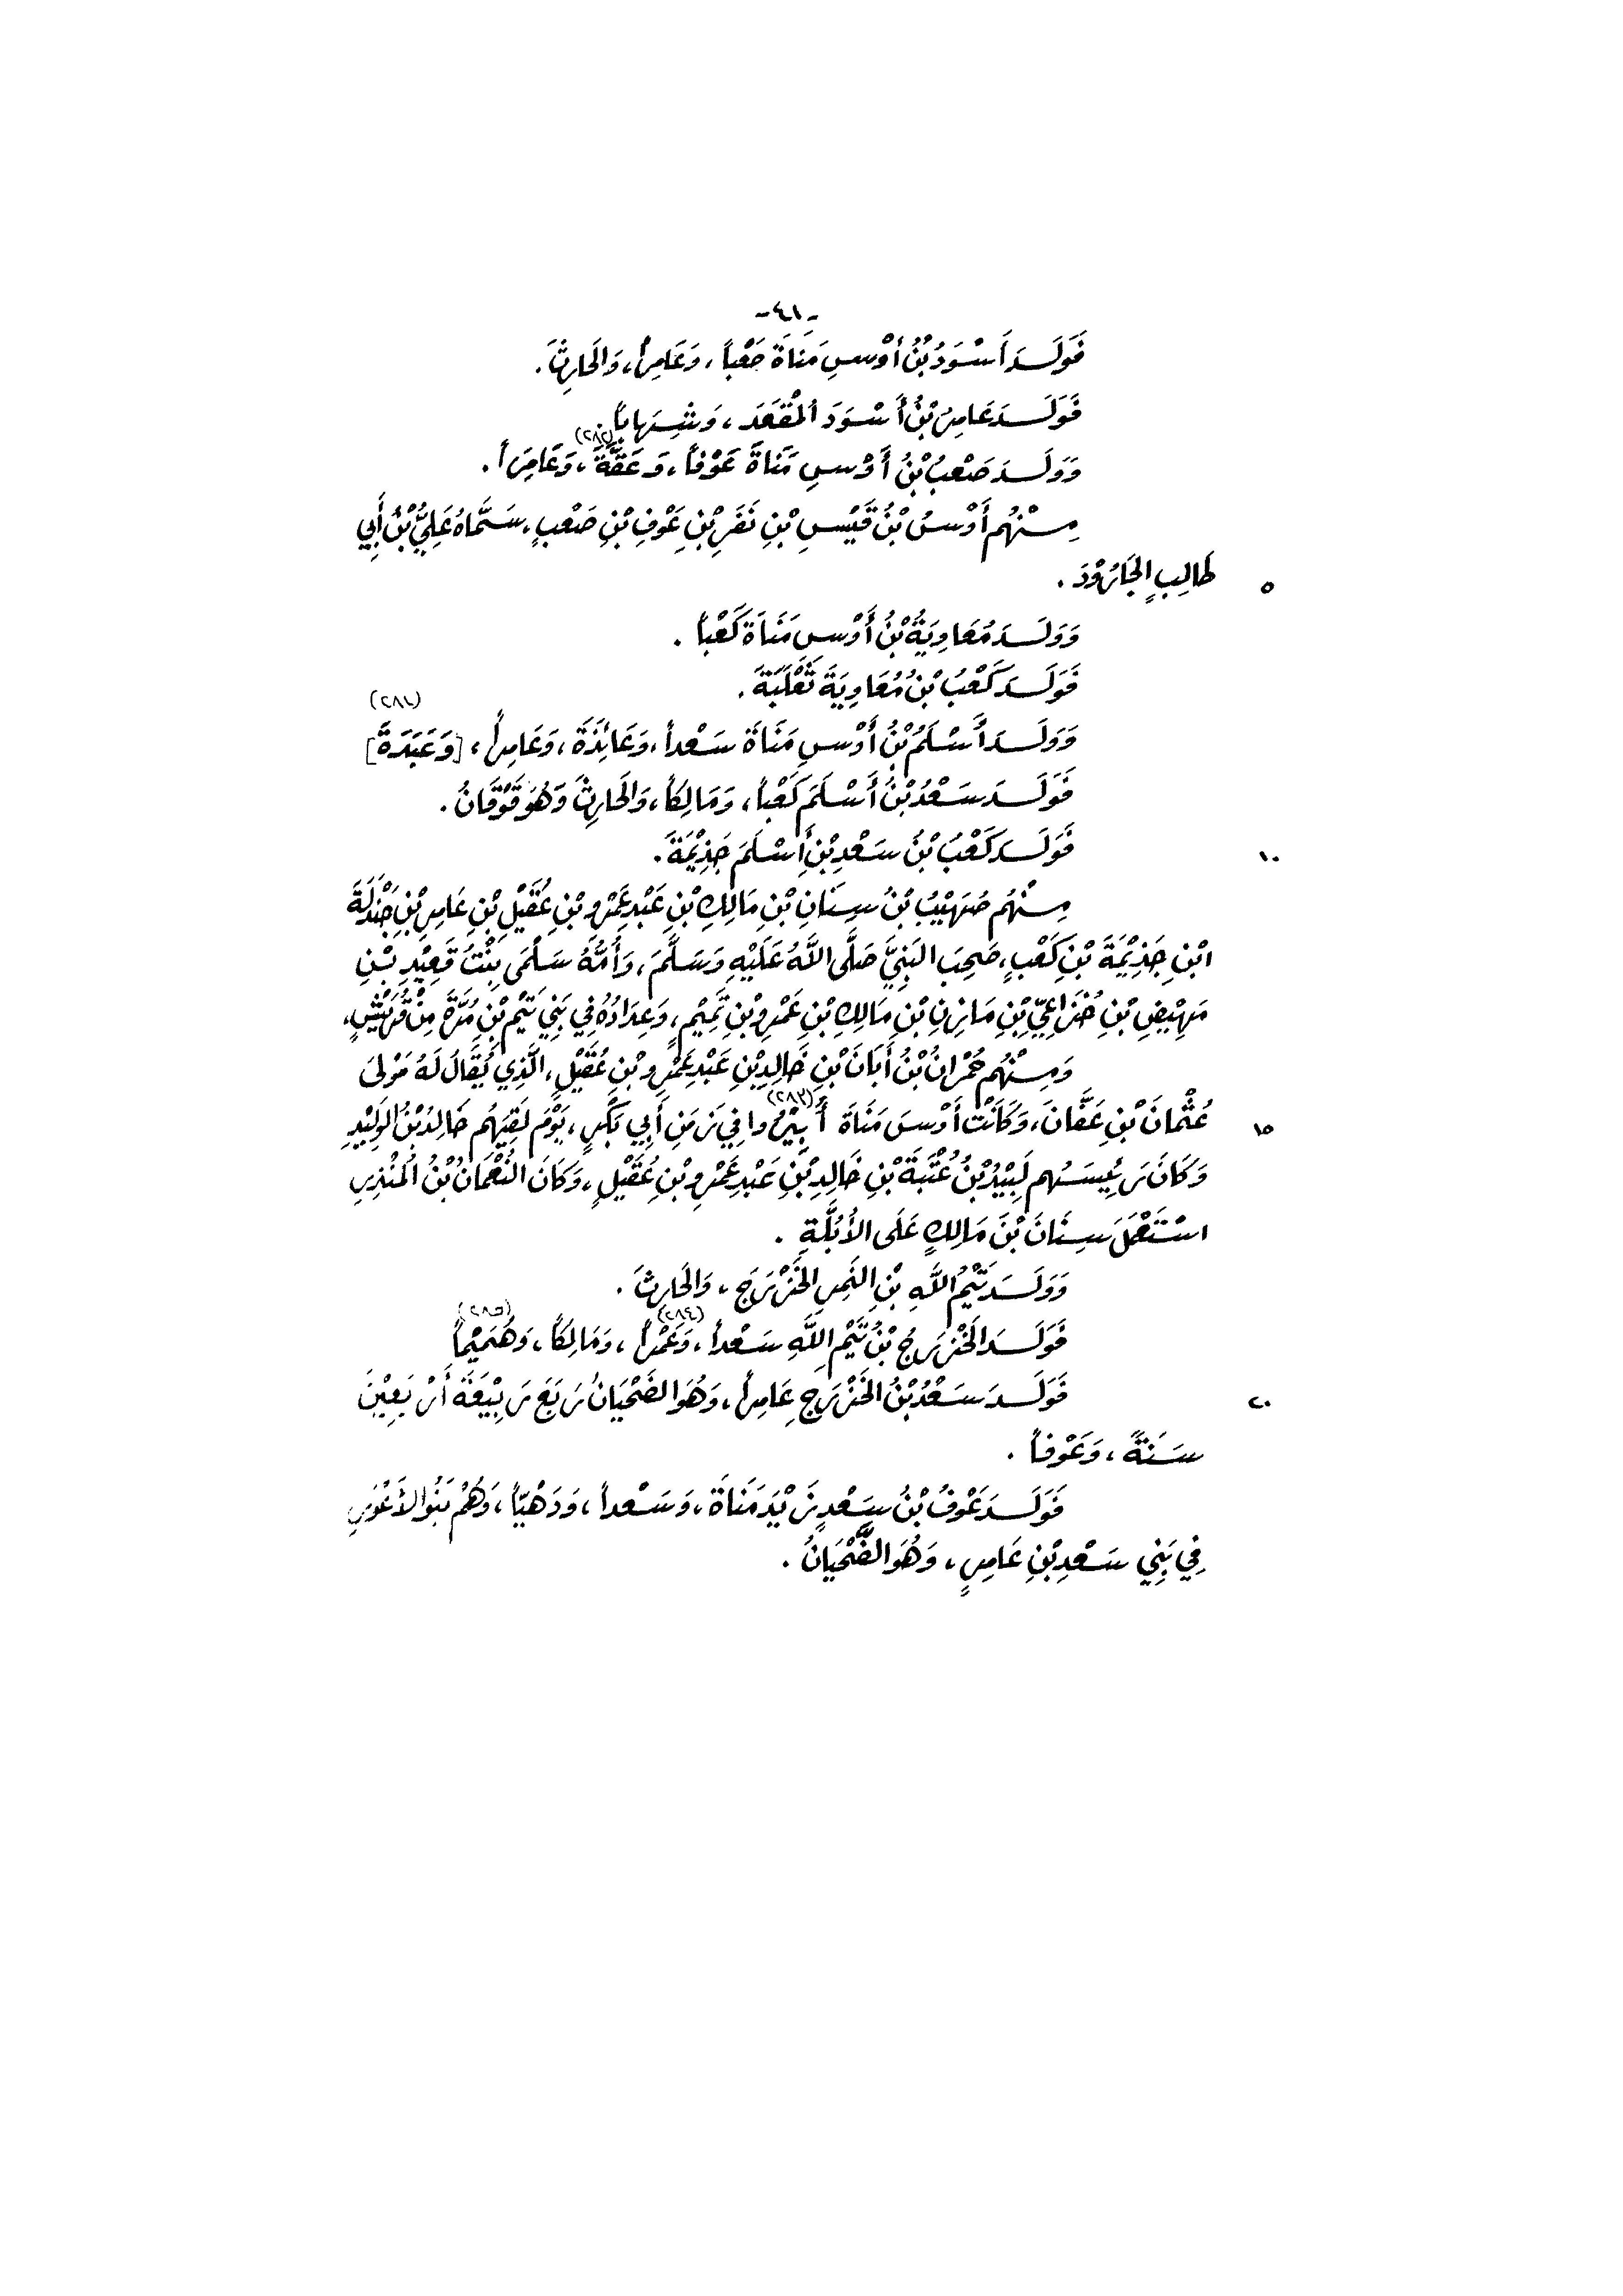 -٤١-
فَوَلَـدَ أَسْوَدُ بْنُ أَوْسِ مَنَاةَ صَعْباً، وَعَامِراً، وَالحَارِثَ.
فَوَلَـدَ عَامِرُ بْنُ أَسْوَدَ المُقْعَدَ، وَشِهَاباً.
وَوَلَـدَ صَعْبُ بْنُ أَوْسِ مَنَاةَ عَوْفاً، وَعَقَّةَ(٢٨٢)، وَعَامِرَاً.
مِـنْهُم أَوْسُ بْنُ قَيْسِ بْنِ نَفَرِ بْنِ عَوْفِ بْنِ صَعْبٍ، سَمَّاهُ عَلِيُّ بْنُ أَبِي
٥ طَالِبٍ الجَارُوْدَ.
وَوَلَـدَ مُعَاوِيَةُ بْنُ أَوْسِ مَنَاةَ كَعْباً.
فَوَلَـدَ كَعْبُ بْنُ مُعَاوِيَةَ ثَعْلَبَةَ.
وَوَلَـدَ أَسْلَمُ بْنُ أَوْسِ مَنَاةَ سَعْداً، وَعَائِذَةَ، وَعَامِراً، [وَعَبَدَةَ](٢٨١)
فَوَلَـدَ سَعْدُ بْنُ أَسْلَمَ كَعْباً، وَمَالِكاً، وَالحَارِثَ وَهُوَ قَوْقَانُ.
١٠ فَوَلَـدَ كَعْبُ بْنُ سَعْدِ بْنِ أَسْلَمَ جَذِيْمَةَ.
مِـنْهُم صُهَيْبُ بْنُ سِنَانِ بْنِ مَالِكِ بْنِ عَبْدِ عَمْرِو بْنِ عُقَيْلِ بْنِ عَامِرِ بْنِ جَنْدَلَةَ
ابْنِ جَذِيْمَةَ بْنِ كَعْبٍ، صَحِبَ النَّبِيَّ صَلَّى اللَّهُ عَلَيْهِ وَسَلَّمَ، وَأُمُّهُ سَلْمَى بِنْتُ قَعِيْدِ بْـنِ
مَهِيْضِ بْنِ خُزَاعِيِّ بْنِ مَازِنِ بْنِ مَالِكِ بْنِ عَمْرِو بْنِ تَمِيْمٍ، وَعِدَادُهُ فِي بَنِي تَيْمِ بْنِ مُرَّةَ مِنْ قُرَيْشٍ،
وَمِـنْهُم حُمْرَانُ بْنُ أَبَانَ بْنِ خَالِدِ بْنِ عَبْدِ عَمْرِو بْنِ عُقَيْلٍ، الَّذِي يُقَالُ لَهُ مَوْلَى
١٥ عُثْمَانَ بْنِ عَفَّانَ، وَكَانَتْ أَوْسَ مَنَاةَ أُبِيْرُوا(٢٨٣) فِي زَمَنِ أَبِي بَكْرٍ، يَوْمَ لَقِيَهُم خَالِدُ بْنُ الوَلِيْدِ
وَكَانَ رَئِيسَـهُم لَبِيْدُ بْنُ عُتْبَةَ بْنِ خَالِدِ بْنِ عَبْدِ عَمْرِو بْنِ عُقَيْلٍ، وَكَانَ النُّعْمَانُ بْنُ المُنْذِرِ
اسْتَعْمَلَ سِنَانَ بْنَ مَالِكٍ عَلَى الأُبُلَّةِ.
وَوَلَـدَ تَيْمُ اللَّهِ بْنِ النَّمِرِ الخَزْرَجَ، وَالحَارِثَ.
فَوَلَـدَ الخَزْرَجُ بْنُ تَيْمِ اللَّهِ سَعْداً، وَعَمْراً(٢٨٤)، وَمَالِكاً، وَهُمَيْماً(٢٨٥)
٢٠ فَوَلَـدَ سَعْدُ بْنُ الخَزْرَجِ عَامِراً، وَهُوَ الضَّحْيَانُ رَبَعَ رَبِيْعَةَ أَرْبَعِيْنَ
سَنَةً، وَعَوْفاً.
فَوَلَـدَ عَوْفُ بْنُ سَعْدٍ زَيْدَ مَنَاةَ، وَسَعْداً، وَدَهْيّاً، وَهُمْ بَنُو الأَعْوَرِ
فِي بَنِي سَعْدِ بْنِ عَامِرٍ، وَهُوَ الضَّحْيَانُ.